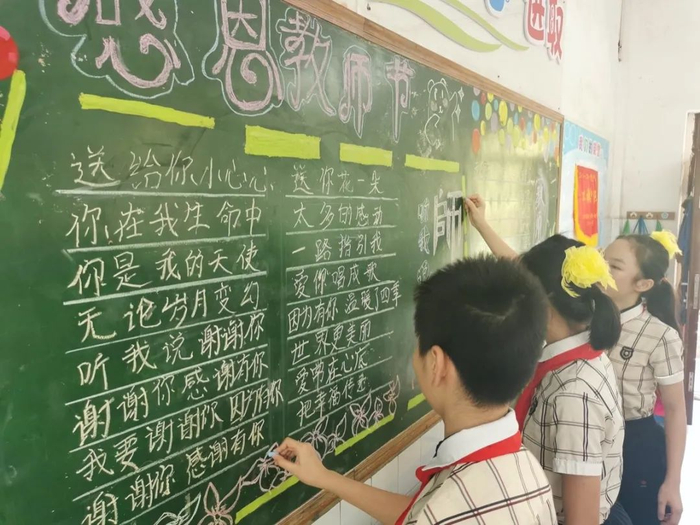 感恩教师节
送给你小心心
你在我生命中
你是我的天使
无论岁月变幻
听我说谢谢你
谢谢你感谢有你
我要谢谢你因为有你
谢谢你感谢有你
送你花一朵
太多的感动
一路指引我
爱你唱成歌
因为有你温暖了四季
世界更美丽
爱常在心底
把幸福传递
听我
师